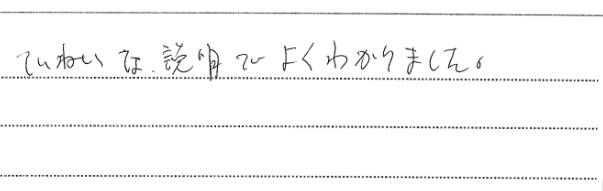 ていねいな説明でよくわかりました。